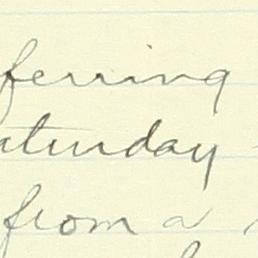 ferring
aturday
from a